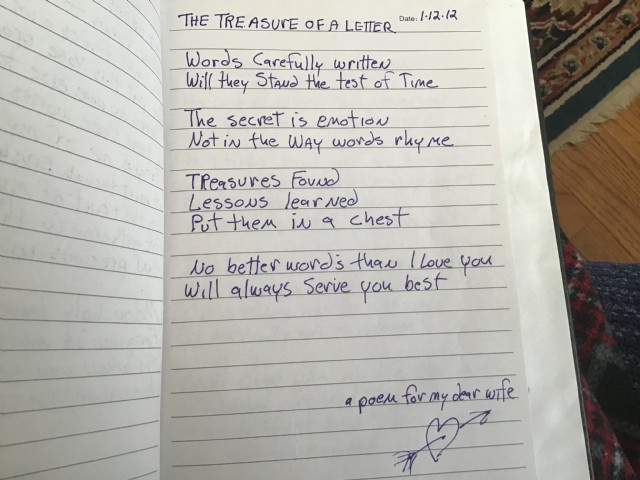 THE TREASURE OF A LETTER Date: 1-12-12
Words Carefully written
Will they Stand the test of Time
The secret is emotion
Not in the WAY words rhyme
TReasures Found
Lessons learned
Put them in a chest
No better words than I Love you
Will always Serve you best
a poem for my dear wife